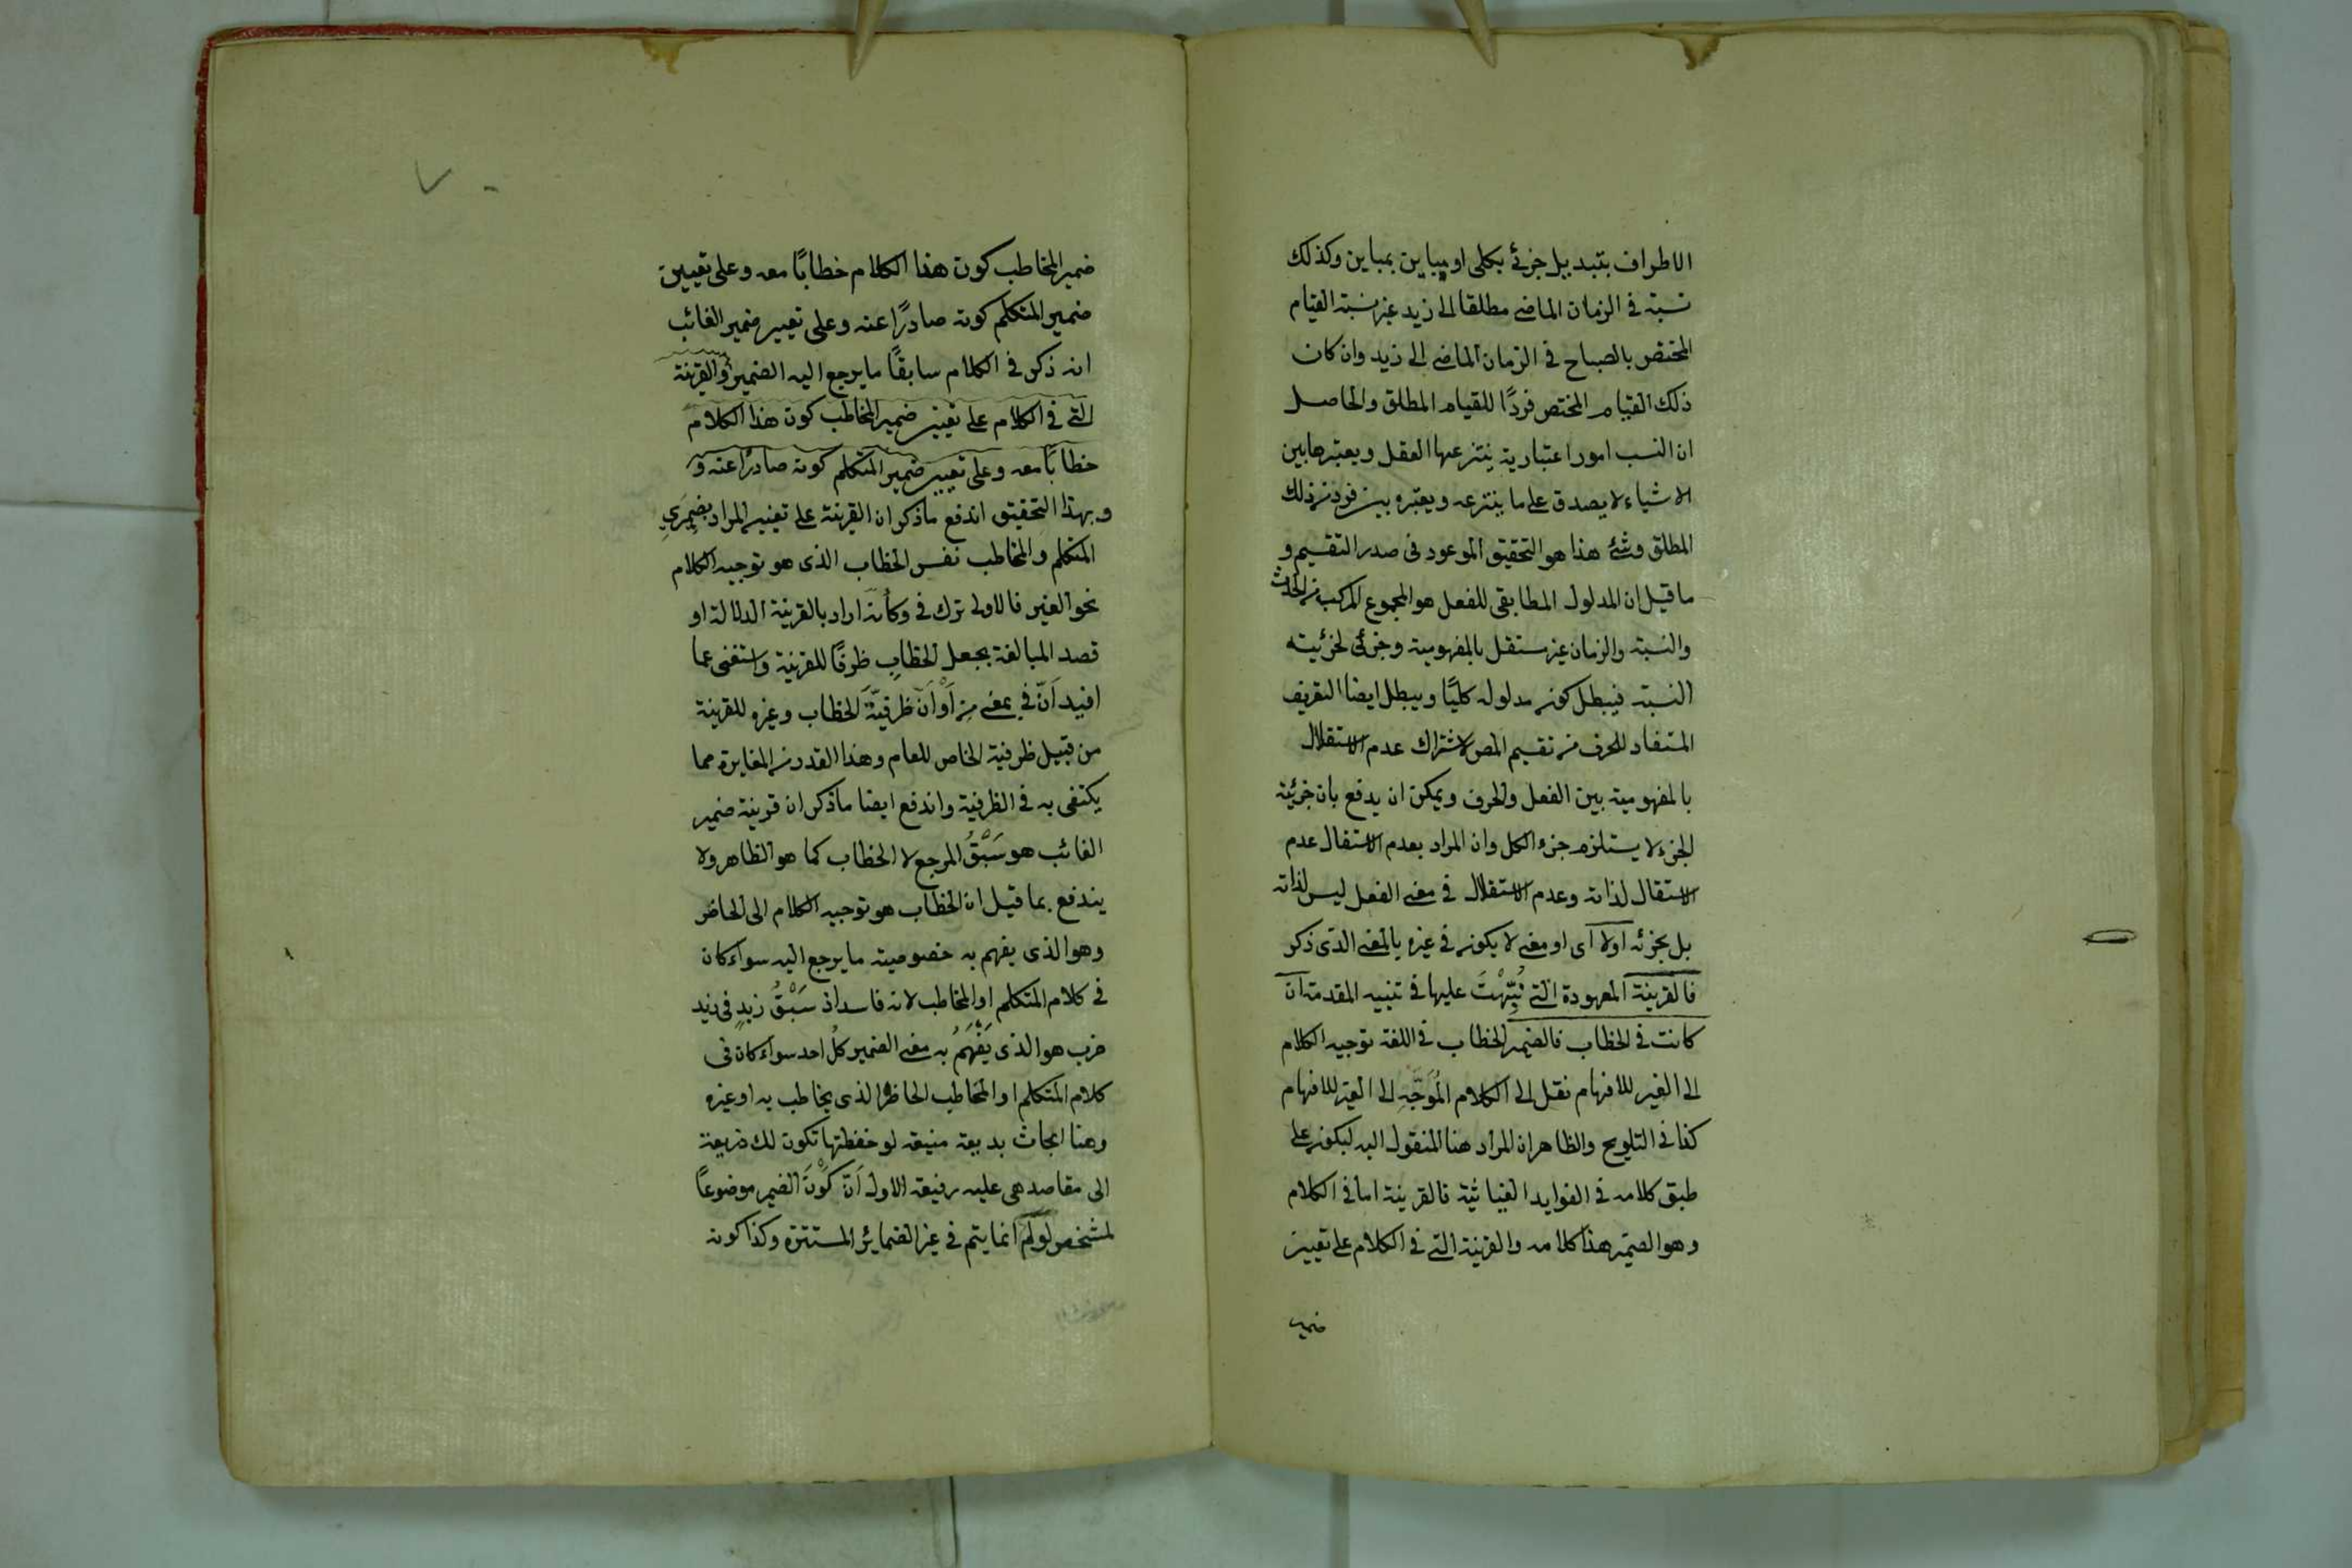 الاطراف بتبديل جزئى بكلى او مباين بمباين وكذلك
نسبته فى الزمان الماضى مطلقا الى زيد غير نسبة القيام
المختص بالصباح فى الزمان الماضى الى زيد وان كان
ذلك القيام المختص فردًا للقيام المطلق والحاصل
ان النسب امور اعتبارية ينتزعها العقل ويعتبرها بين
الاشياء لا يصدق على ما ينتزعه ويعتبره بين فرد من ذلك
المطلق وشئ هذا هو التحقيق الموعود فى صدر التقسيم و
ما قيل ان المدلول المطابقى للفعل هو المجموع المركب من الحدث
والنسبة والزمان غير مستقل بالمفهومية وجزئى لجزئيته
النسبة فيبطل كون مدلوله كليًا ويبطل ايضا التعريف
المستفاد للحرف من تقسيم المص لاشتراك عدم الاستقلال
بالمفهومية بين الفعل والحرف ويمكن ان يدفع بان جزئية
الجزء لا يستلزم جزء الكل وان المراد بعدم الاستقال عدم
الاستقال لذاته وعدم الاستقلال فى معنى الفعل ليس لذاته
بل بجزئه اولا اى او معنى لا يكون فى غيره بالمعنى الذى ذكر
فالقرينة المعهودة التى نُبِّهْتَ عليها فى تنبيه المقدمة ان
كانت فى الخطاب فالضمير الخطاب فى اللغة توجيه الكلام
الى الغير للافهام نقل الى الكلام المُوَجَّهِ الى الغير للافهام
كذا فى التلويح والظاهر ان المراد هنا المنقول اليه ليكون على
طبق كلامه فى الفوايد الغياثية فالقرينة اما فى الكلام
وهو الضمير هذا كلامه والقرينة التى فى الكلام على تعيين
ضمير
ضمير المخاطب كون هذا الكلام خطابًا معه وعلى تعيين
ضمير المتكلم كونه صادرًا عنه وعلى تعيين ضمير الغائب
انه ذكر فى الكلام سابقًا ما يرجع اليه الضمير والقرينة
التى فى الكلام على تعيين ضمير المخاطب كون هذا الكلام
خطابًا معه وعلى تعيين ضمير المتكلم كونه صادرًا عنه و
وبهذا التحقيق اندفع ما ذكر ان القرينة على تعيين المراد بضميرَىِ
المتكلم والمخاطب نفس الخطاب الذى هو توجيه الكلام
نحو الغير فالاولى ترك فى وكأنه اراد بالقرينة الدلالة او
قصد المبالغة بجعل الخطابِ ظرفًا للقرينة واستغنى عما
افيد اَنّ فى بمعنى مِن اَوْ اَنّ ظرفيّةَ الخطاب وغيره للقرينة
من قبيل ظرفية الخاص للعام وهذا القدر من المغايرة مما
يكتفى به فى الظرفية واندفع ايضا ما ذكر ان قرينة ضمير
الغائب هو سَبْقُ المرجع لا الخطاب كما هو الظاهر ولا
يندفع بما قيل ان الخطاب هو توجيه الكلام الى الحاضر
وهو الذى يفهم به خصوصية ما يرجع اليه سواء كان
فى كلام المتكلم او المخاطب لانه فاسد اذ سَبْقُ زيدٍ فى زيد
ضرب هو الذى يَفْهَمُ به معنى الضمير كلُّ احد سواء كان فى
كلام المتكلم او المخاطب الحاضر الذى يخاطب به او غيره
وهنا ابحاث بديعة منيعة لو حفظتها تكون لك ذريعة
الى مقاصد هى علية رفيعة الاول اَنّ كَوْنَ الضمير موضوعًا
لمشخص لو تم انما يتم فى غير الضمائر المستترة وكذا كونه